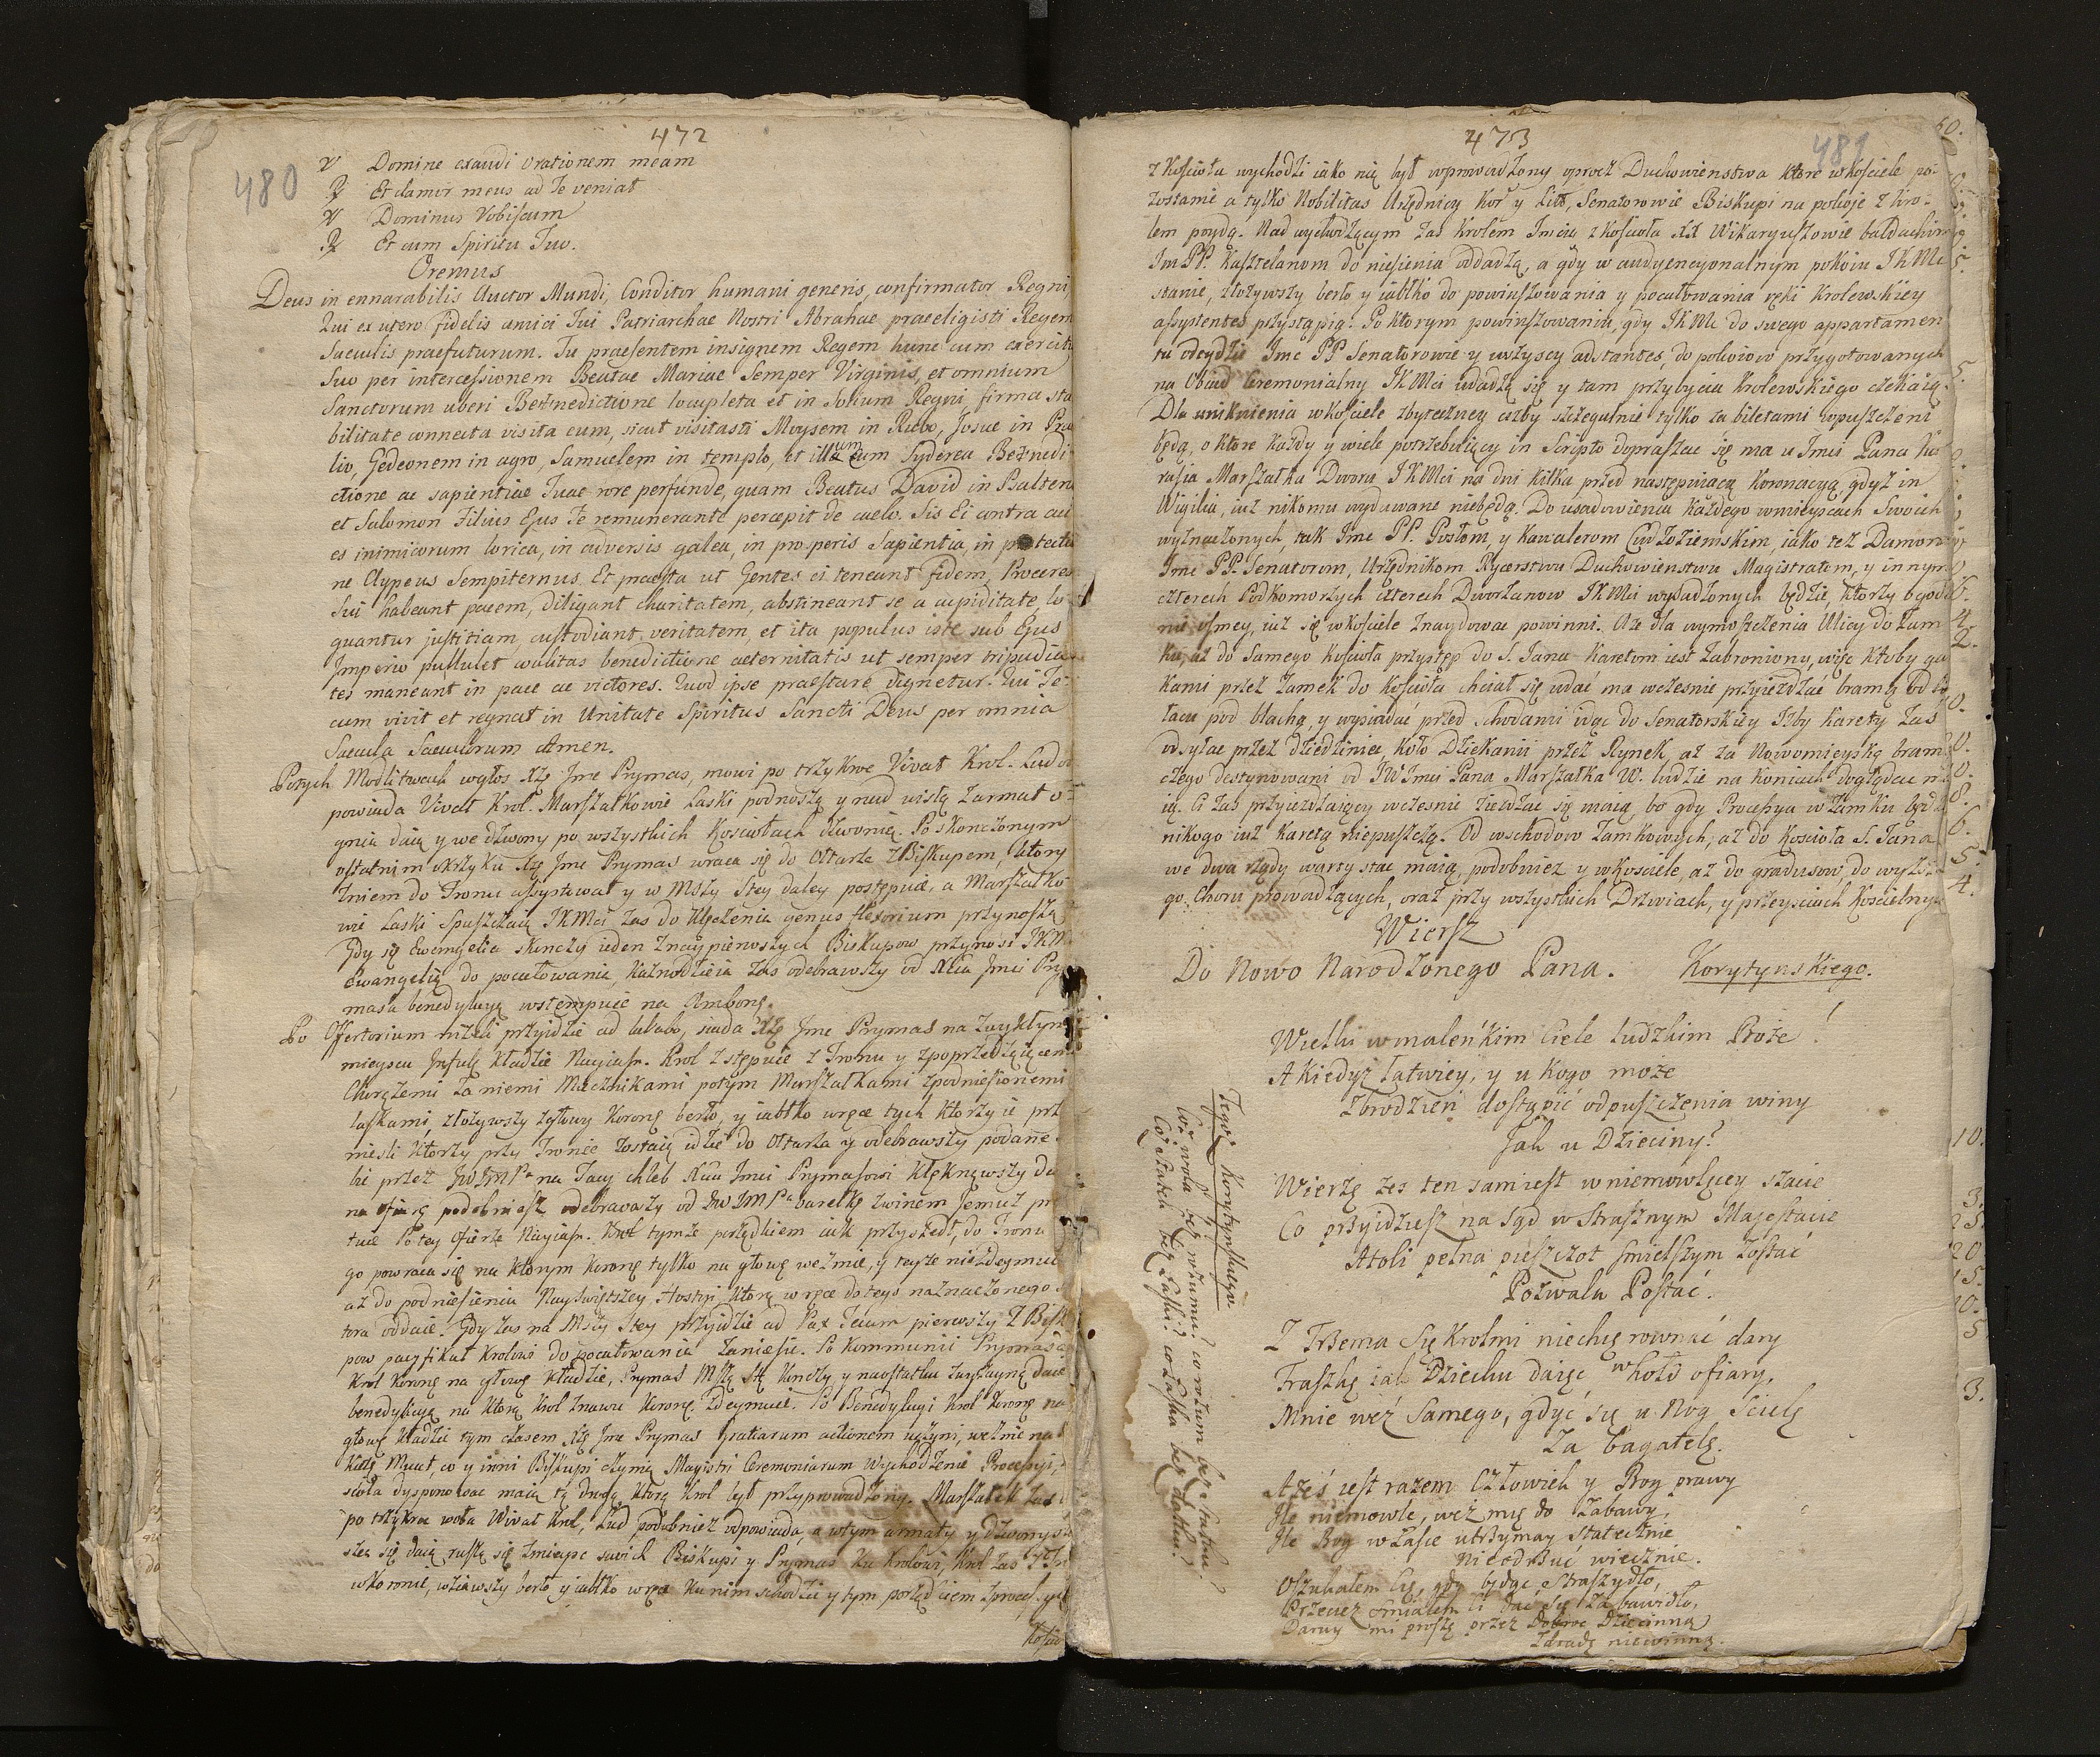 472
480
V Domine exaudi orationem meam
R Et clamor meus ad Te veniat
V Dominus Vobiscum
R Et cum Spiritu Tuo.
Oremus
Deus in ennarabilis Auctor Mundi, Conditor humani generis, confirmator Regni,
Qui ex utero fidelis amici Tui Patriarchae Nostri Abrahae praeeligisti Regem
Saeculis praefuturum. Tu praesentem insignem Regem hunc cum exercitu
Suo per intercessionem Beatae Mariae Semper Virginis, et omnium
Sanctorum uberi Benedictione locupleta et in Solium Regni firma sta
bilitate connecta visita eum, sicut visitasti Moysem in Rubo, Josue in Prae
lio, Gedeonem in agro, Samuelem in templo, et illa eum Syderea Benedi
ctione ac sapientiae Tuae rore perfunde, quam Beatus David in Psalteri
et Salomon Filius Ejus Te remunerante percepit de caelo. Sis Ei contra aci
es inimicorum lorica, in adversis galea, in prosperis Sapientia, in protectio
ne Clypeus Sempiternus. Et praesta ut Gentes ei teneant fidem, Proceres
Sui habeant pacem, diligant charitatem, abstineant se a cupiditate, lo
quantur justitiam, custodiant veritatem, et ita populus iste sub Ejus
Imperio pullulet coalitus benedictione aeternitatis ut semper tripudian
tes maneant in pace ac victores. Quod ipse praestare dignetur. Qui Te
cum vivit et regnat in Unitate Spiritus Sancti Deus per omnia
Saecula Saeculorum Amen.
Po tych Modlitwach w głos Xżę Jmc Prymas, mowi po trzykroc Vivat Krol. Lud od
powiada Vivat Krol. Marszałkowie Laski podnoszą y nad wisłą z armat o
gnia daią y we dzwony po wszystkich Kosciołach dzwonią. Po skonczonym
ostatnim okrzyku Xżę Jmc Prymas wraca się do Ołtarza z Biskupem, ktory
z niem do Tronu assystował y w Mszy Stey daley postępuie, a Marszałko
wie Laski Spuszczaią JKMci zas do klęczenia genus flexorium przynoszą
Gdy się Ewangelia skonczy ieden z naypierwszych Biskupow przynosi JKM
Ewangelią do pocałowania, kaznodzieia zas odebrawszy od Xcia Jmci Pry
masa benedykcyą wstempuie na Ambonę.
Po Offertorium nizeli przyidzie ad lababo, siada Xżę Jmc Prymas na zwykłym
mieyscu Infułę kładzie Nayias. Krol zstępuie z Tronu y zpoprzedzaiącem
Chorążemi za niemi Miecznikami potym Marszałkami z podniesionemi
laskami, złożywszy z głowy Koronę berło, y iabłko w ręce tych ktorzy ie prz
niesli ktorzy przy Tronie zostaią idzie do Ołtarza y odebrawszy podane
bie przez JWJMPa na Tacy chleb Xciu Jmci Prymasowi klęknąwszy da
na ofiarę podobniesz odebrawszy od JWJMPa baryłkę z winem Jemuż pr
tuie Po tey ofierze Nayias. Krol tymże porządkiem iak przyszedł, do Tronu
go powraca się na ktorym Koronę tylko na głowę weźmie, y teyże niezdeymuie
aż do podniesienia Nayswiętszey Hostyi ktorą w ręce do tego naznaczonego
tora oddaie. Gdy zas na Mszy Stey przyidzie ad Pax Tecum pierwszy z Bisk
pow pacyfikał Krolowi do pocałowania zaniesie. Po Kommunii Prymasa
Krol Koronę na głowę kładzie, Prymas Mszę Stą konczy y na ostatku zwyczayną daie
benedykcyą na ktorą Krol znowu Koronę zdeymuie. Po Benedykcyi Krol Koronę na
głowę kładzie tym czasem Xżę Jmc Prymas Gratiarum actionem uczyni, weźmie na
co y inni Biskupi czynią Magistri Ceremoniarum wychodzenie Processyi,
scioła dysponowac maią tą drogą ktorą Krol był przyprowadzony. Marszałek zas
po trzykroc woła Wivat Krol, Lud podobnież odpowiada, a wtym armaty y dzwony
szec się daią ruszą się zmieysc swoich Biskupi y Prymas ku Krolowi, Krol zas
w koronie, wziąwszy berło y iabłko w ręce ku nim schodzi y tym porządkiem z process
Koscio
473
481
z Kościoła wychodzi iako nię był wprowadzony oprocz Duchowienstwa ktore w kościele po
zostanie a tylko Nobilitas Urzędnicy Kor y Litt, Senatorowie Biskupi na pokoje z Kro
lem poydą. Nad wychodzącym zas Krolem Jmcią z kościoła XX Wikaryuszowie baldachim
Jm PP. Kasztelanom do niesienia oddadzą, a gdy w audyencyonalnym pokoiu JKMc
stanie, złożywszy berło y iabłko do powinszowania y pocałowania ręki Krolewskiey
assystentes przystąpią. Po ktorym powinszowaniu, gdy JKMc do swego appartamen
tu odeydzie Jmc PP Senatorowie y wszyscy adstantes, do pokoiow przygotowanych
na Obiad Ceremonialny JKMci udadzą się y tam przybycia Krolewskiego czekaią.
Dla uniknienia w kościele zbyteczney ciżby szczegulnie tylko za biletami wpuszczeni
będą, o ktore każdy y wiele potrzebuiący in Scripto dopraszac się ma u Jmci Pana Ku
rasia Marszałka Dworu JKMci na dni kilka przed następuiącą Koronacyą gdyż in
Wigilia, iuż nikomu wydawane niebędą. Do usadowienia każdego w mieyscach Swoich
wyznaczonych, tak Jmc PP. Posłom, y Kawalerom Cudzoziemskim, iako też Damom
Jmc PP. Senatorom, Urzędnikom Rycerstwu Duchowienstwu Magistratom, y innym
czterech Podkomorzych czterech Dworzanow JKMci wysadzonych będzie, ktorzy o godzi
nie osmey, iuż się w kościele znaydowac powinni. A że dla wymoszczenia Ulicy do Zam
ku, aż do Samego Kościoła przystęp do S. Jana Karetom iest zabroniony, więc ktoby ga
kami przez Zamek do Kościoła chciał się udać ma wczesnie przyieżdżać bramą od
łacu pod blachą, y wysiadać przed Schodami idąc do Senatorskiey Izby Karety zaś
odsyłac przez dziedziniec koło Dziekanii przez Rynek, aż za Nowomieyską bram
czego destynowani od JWJmci Pana Marszałka W. ludzie na koniach doglądac m
ią. Ci zas przyieżdżaiący wczesnie zieżdżac się maią, bo gdy Processya w Zamku będz
nikogo iuż karetą niepuszczą. Od wschodow Zamkowych, aż do Kościoła S. Jana
we dwa rzędy warty stac maią, podobnież y w kościele, aż do gradusow do wyższ
go Choru prowadzących, oraz przy wszystkich Drzwiach, y przeysciach Kościelnych
Wiersz
Do Nowo Narodzonego Pana. Korytynskiego.
Wielki w maleńkim Ciele ludzkim Boże!
A kiedyż łatwiey, y u kogo może
Zbrodzień dostąpić odpuszczenia winy
Jak u Dzieciny?
Wierzę żes ten sam iest w niemowlęcey szacie
Co przyidziesz na Sąd w Strasznym Majestacie
Atoli pełna pieszczot śmielszym zostać
Pozwala Postać.
Z Trzema Się Krolmi niechcę rownać dary
Fraszkę iak Dziecku daiąc w hołd ofiary,
Mnie weź Samego, gdyć się u Nog Scielę
Za bagatelę.
A żeś iest razem Człowiek y Bog prawy
Jle niemowle, weź mię do zabawy,
Jle Bog w łasce utrzymay statecznie
Nieodrzuć wiecznie.
Oszukałem Cię, gdy będąc Straszydło,
Przeciez śmiałem Ci dac się za bawidło,
Daruy mi proszę przez Dobroc Dziecinną
Zdradę niewinną.
Tegoż Korytynskiego
Coż wola bez rozumu? co rozum bez Statku?
Coż Statek bez Łaski? co łaska bez datku?